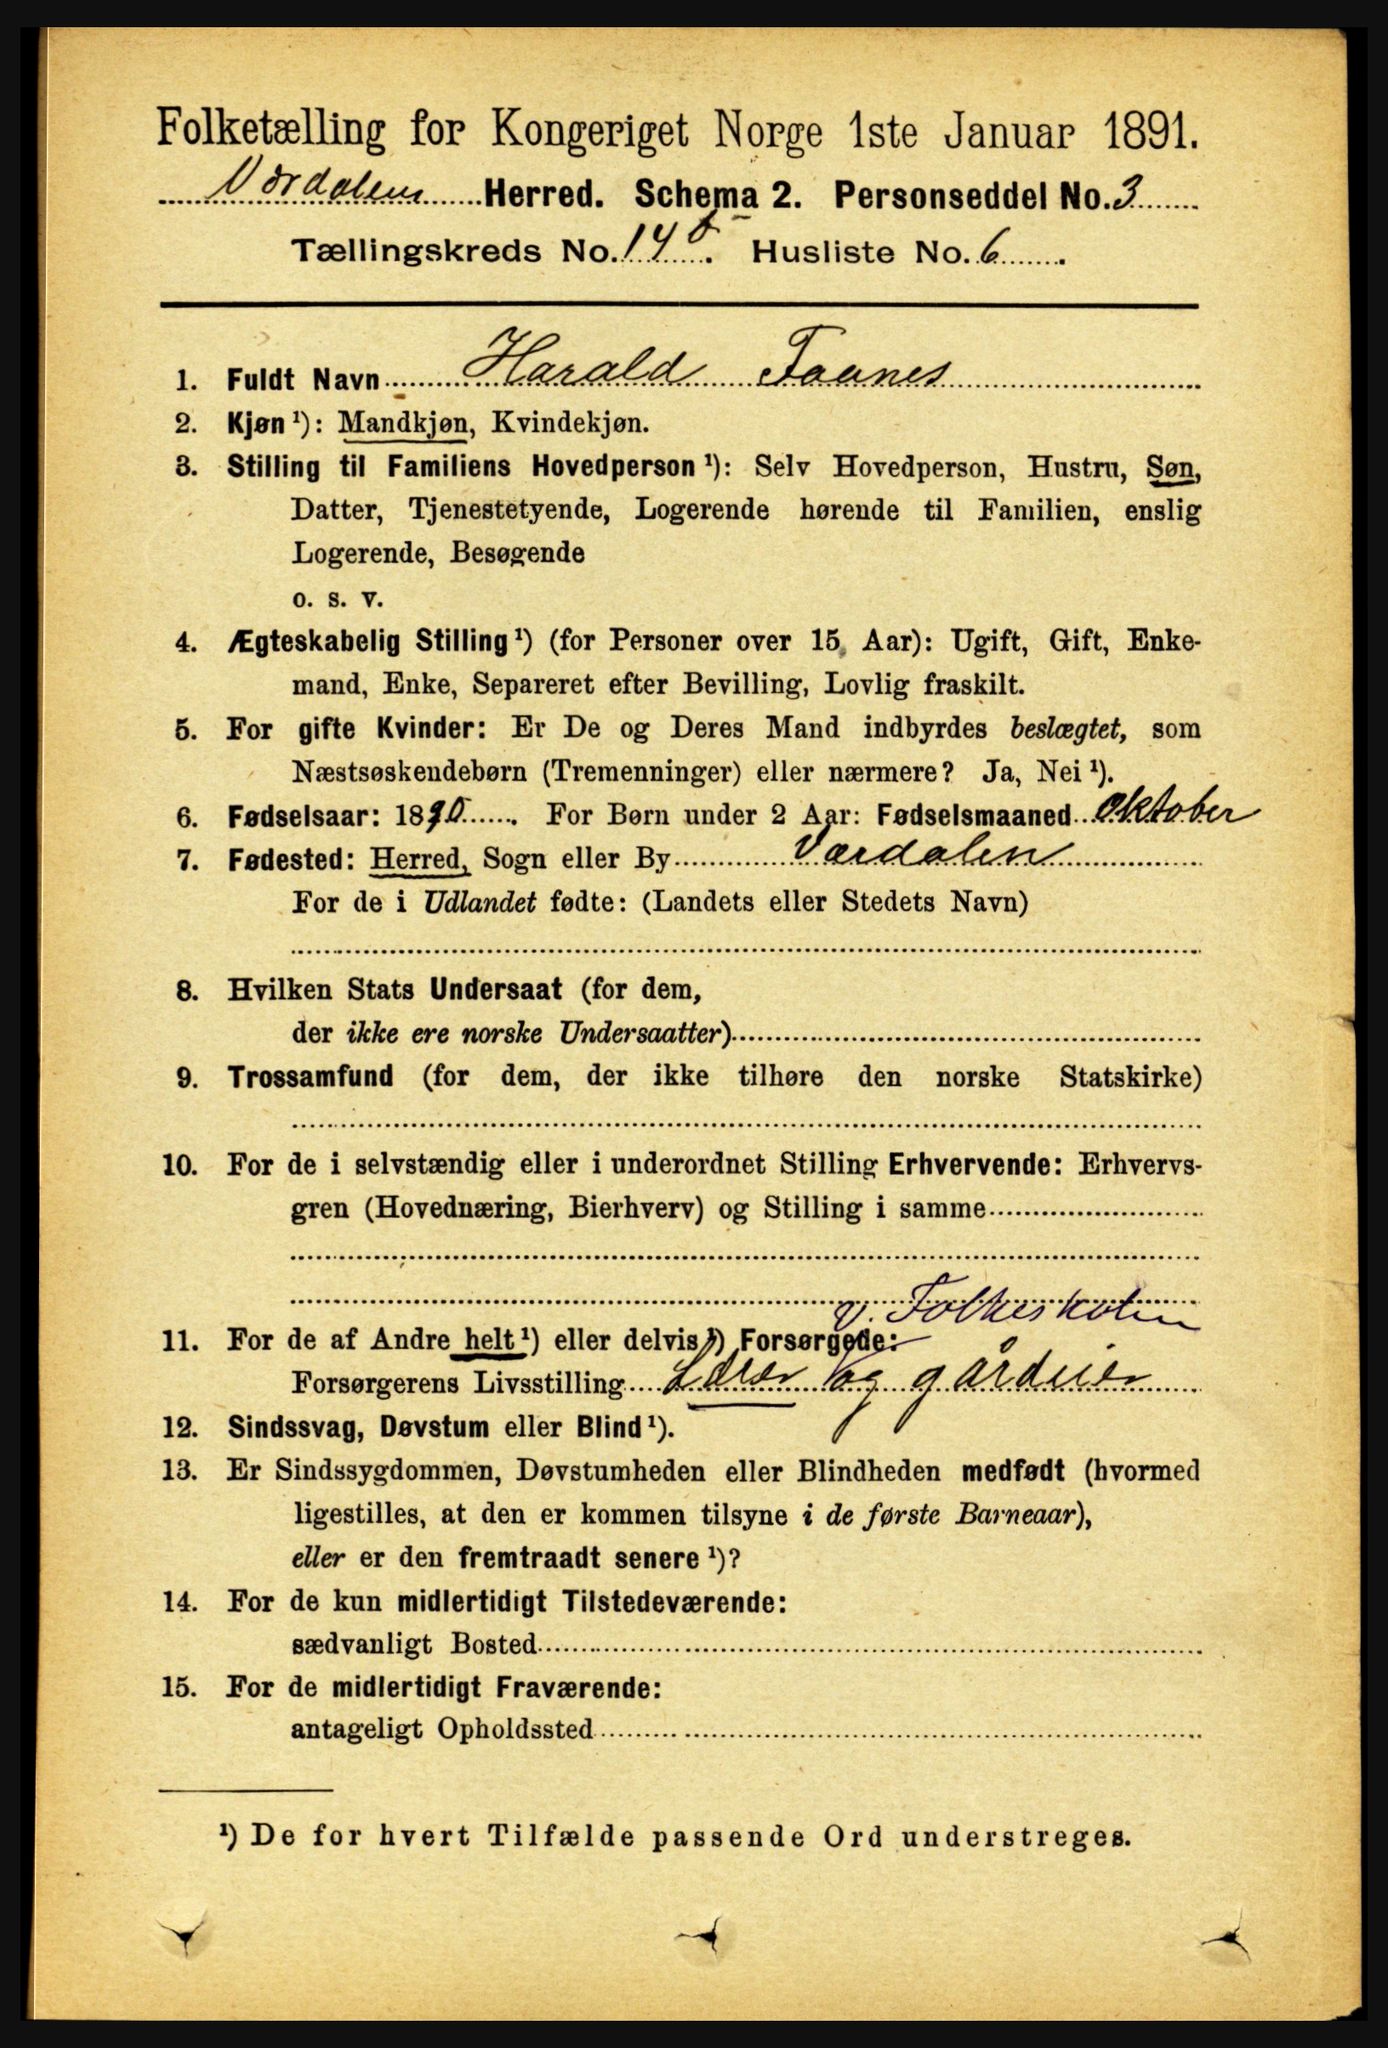 Folketælling for Kongeriget Norge 1ste Januar 1891.
Værdalens Herred. Schema 2. Personseddel No. 3
Tællingskreds No. 14 b. Husliste No. 6.
1. Fuldt Navn Harald Faanes
2. Kjøn ¹): Mandkjøn, Kvindekjøn.
3. Stilling til Familiens Hovedperson ¹): Selv Hovedperson, Hustru, Søn,
Datter, Tjenestetyende, Logerende hørende til Familien, enslig
Logerende, Besøgende
o. s. v.
4. Ægteskabelig Stilling ¹) (for Personer over 15 Aar): Ugift, Gift, Enke-
mand, Enke, Separeret efter Bevilling, Lovlig fraskilt.
5. For gifte Kvinder: Er De og Deres Mand indbyrdes beslægtet, som
Næstsøskendebørn (Tremenninger) eller nærmere? Ja, Nei ¹).
6. Fødselsaar: 1890. For Børn under 2 Aar: Fødselsmaaned Oktober
7. Fødested: Herred, Sogn eller By Værdalen
For de i Udlandet fødte: (Landets eller Stedets Navn)
8. Hvilken Stats Undersaat (for dem,
der ikke ere norske Undersaatter)
9. Trossamfund (for dem, der ikke tilhøre den norske Statskirke)
10. For de i selvstændig eller i underordnet Stilling Erhvervende: Erhvervs-
gren (Hovednæring, Bierhverv) og Stilling i samme
v. Folkeskolen
11. For de af Andre helt ¹) eller delvis ¹) Forsørgede:
Forsørgerens Livsstilling Lærer og gårdeier
12. Sindssvag, Døvstum eller Blind ¹).
13. Er Sindssygdommen, Døvstumheden eller Blindheden medfødt (hvormed
ligestilles, at den er kommen tilsyne i de første Barneaar),
eller er den fremtraadt senere ¹)?
14. For de kun midlertidigt Tilstedeværende:
sædvanligt Bosted
15. For de midlertidigt Fraværende:
antageligt Opholdssted
¹) De for hvert Tilfælde passende Ord understreges.